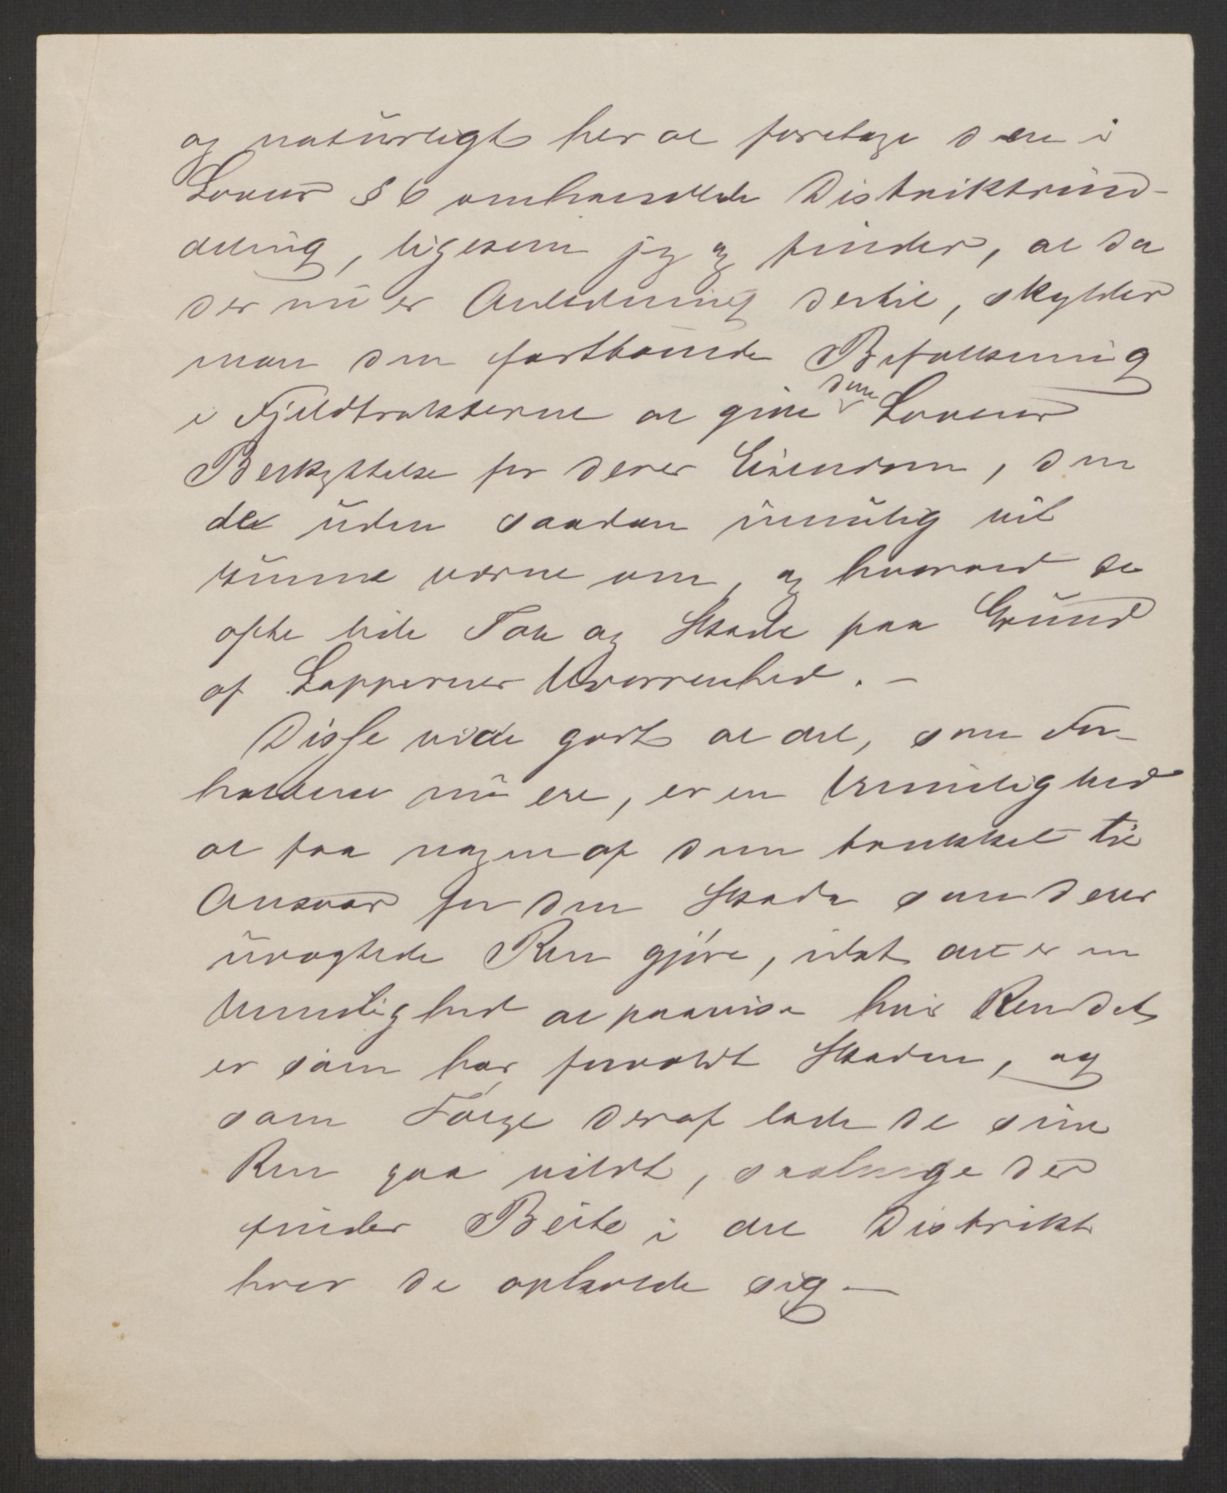 og naturligt her at foretage den i
Lovens § 6 omhandlede Distriktsind-
deling, ligesom jeg og finder, at da
der nu er Anledning dertil, skylder
man den fastboende Befolkning
i Fjeldtrakterne at give dem Lovens
Beskyttelse for deres Eiendom, som
de uden saadan umulig vil
kunne værne om, og hvorved de
ofte lide Tab og Skade paa Grund
af Lappernes Uvorrenhed. –
Disse vide godt at det, som For-
holdene nu ere, er en Umulighed
at faa nogen af dem trukket til
Ansvar for den Skade som deres
uvogtede Ren gjøre, idet det er en
Umulighed at paavise hvis Ren det
er som har forvoldt Skaden, og
som Følge deraf lade de sine
Ren gaa vildt, saalænge der
finder Beite i det Distrikt
hvor de opholde sig –